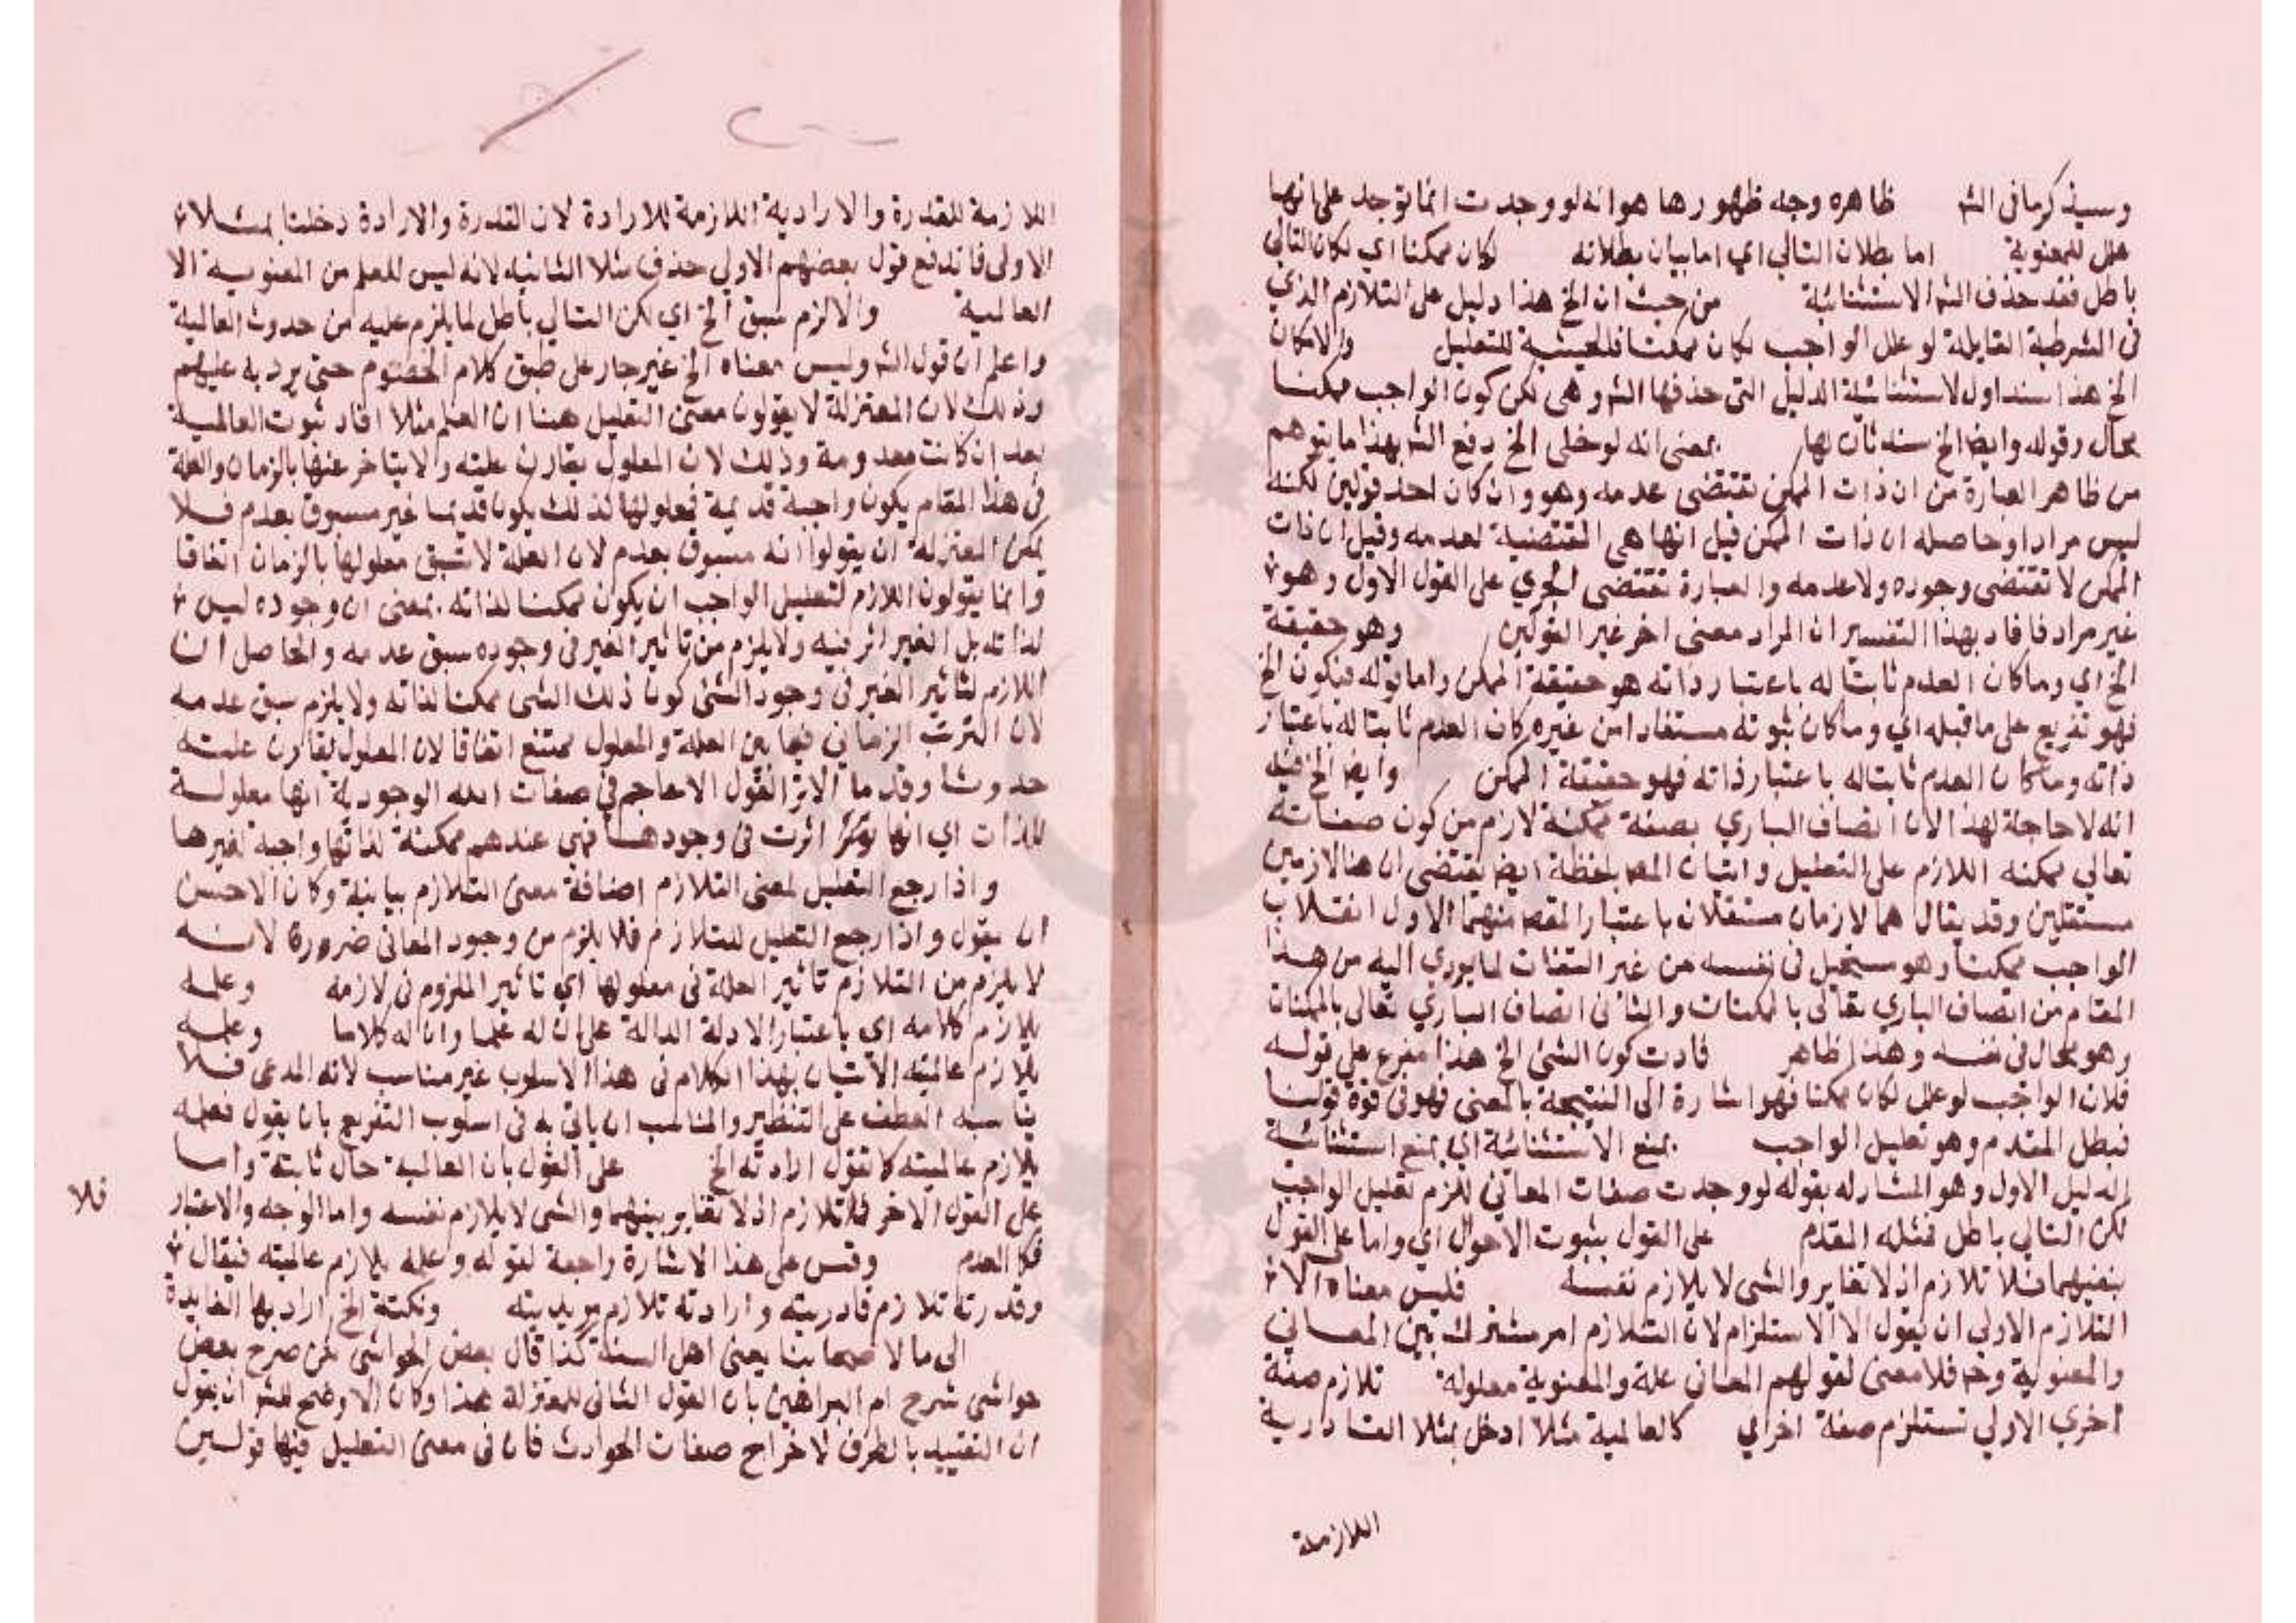 وسيذكر ما في الشه ظاهره وجه ظهورها هو انه لو وجدت انما توجد على انها
علل للمعنوية اما بطلان التالي اي اما بيان بطلانه لكان ممكنا اي لكان التالي
باطل فقد حذف الشه الاستثنائية من حيث ان الخ هذا دليل على التلازم الذي
في الشرطية القايلة لو علل الواجب لكان ممكنا فالحيثية للتعليل والامكان
الخ هذا سند اول لاستثنائية الدليل التي حذفها الشه وهي لكن كون الواجب ممكنا
محال وقوله وايضا الخ سند ثان لها بمعنى انه لو خلى الخ دفع الشه بهذا ما يتوهم
من ظاهر العبارة من ان ذات الممكن تقتضى عدمه وهو وان كان احد قولين لكنه
ليس مرادا وحاصله ان ذات الممكن قيل انها هي المقتضية لعدمه وقيل ان ذات
الممكن لا تقتضى وجوده ولا عدمه والعبارة تقتضى الجري على القول الاول وهو
غير مراد فافاد بهذا التفسير ان المراد معنى اخر غير القولين وهو حقيقة
الخ اي وما كان العدم ثابتا له باعتبار ذاته هو حقيقة الممكن واما قوله فيكون الخ
فهو تفريع على ما قبله اي وما كان ثبوته مستفادا من غيره كان العدم ثابتا له باعتبار
ذاته وما كان العدم ثابتا له باعتبار ذاته فهو حقيقة الممكن وايضا الخ فيه
انه لا حاجة لهذا لان اتصاف الباري بصفة ممكنة لازم من كون صفاته
تعالى ممكنه اللازم على التعليل واتيان المصه بلفظة ايضا يقتضى ان هنا لازمين
مستقلين وقد يقال هما لازمان مستقلان باعتبار المقصه منهما الاول انقلاب
الواجب ممكنا وهو مستحيل في نفسه من غير التفات لما يودي اليه من هذا
المقام من اتصاف الباري تعالى بالممكنات والثاني اتصاف الباري تعالى بالممكنات
وهو محال في نفسه وهذا ظاهر فادت كون الشئ الخ هذا مفرع على قوله
فلان الواجب لو علل لكان ممكنا فهو اشارة الى النتيجة بالمعنى فهو في قوة قولنا
فبطل المقدم وهو تعليل الواجب بمنع الاستثنائية اي بمنع استثنائية
الدليل الاول وهو المشار له بقوله لو وجدت صفات المعاني للزم تعليل الواجب
لكن التالي باطل فمثله المقدم على القول بثبوت الاحوال اي واما على القول
بنفيهما فلا تلازم اذ لا تغاير والشى لا يلازم نفسه فليس معناه الا
التلازم الاولى ان يقول الا الاستلزام لان التلازم امر مشترك بين المعاني
والمعنوية وحه فلا معنى لقولهم المعاني علة والمعنوية معلولة تلازم صفة
اخري الاولي تستلزم صفة اخراي كالعالمية مثلا ادخل بمثلا القادرية
اللازمة
اللازمة للقدرة والارادية اللازمة للارادة لان القدرة والارادة دخلتا بمثلا
الاولى فاندفع قول بعضهم الاولي حذف مثلا الثانيه لانه ليس للعلم من المعنوية الا
العالمية والا لزم سبق الخ اي لكن التالي باطل لما يلزم عليه من حدوث العالمية
واعلم ان قول الشه وليس معناه الخ غير جار على طبق كلام الخصوم حتى يرد به عليهم
وذلك لان المعتزلة لا يقولون معنى التعليل هنا ان العلم مثلا افاد ثبوت العالمية
بعد ان كانت معدومة وذلك لان المعلول يقارن علته ولا يتاخر عنها بالزمان والعلة
في هذا المقام يكون واجبة قديمة فمعلولها كذلك يكون قديما غير مسبوق بعدم فلا
يمكن المعتزلة ان يقولوا انه مسبوق بعدم لان العلة لا تسبق معلولها بالزمان اتفاقا
وانما يقولون اللازم لتعليل الواجب ان يكون ممكنا لذاته بمعنى ان وجوده ليس
لذاته بل الغير اثر فيه ولا يلزم من تاثير الغير في وجوده سبق عدمه والحاصل ان
اللازم لتاثير الغير في وجود الشئ كون ذلك الشى ممكنا لذاته ولا يلزم سبق عدمه
لان الترتب الزماني فيما بين العلة والمعلول ممتنع اتفاقا لان المعلول يقارن علته
حدوثا وقدما الا تر القول الاعاجم في صفات الله الوجودية انها معلولة
للذات اي انها اثرت في وجودها فهي عندهم ممكنة لذاتها واجبة لغيرها
واذا رجع التعليل لمعنى التلازم اضافة معنى التلازم بيانية وكان الاحسن
ان يقول واذا رجع التعليل للتلازم فلا يلزم من وجود المعاني ضرورة لانه
لا يلزم من التلازم تاثير العلة في معلولها اي تاثير الملزوم في لازمه وعلمه
يلازم كلامه اي باعتبار الادلة الدالة على ان له علما وان له كلاما وعلمه
يلازم عالميته الاتيان بهذا الكلام في هذا الاسلوب غير مناسب لانه المدعى فلا
يناسبه العطف على التنظير والمناسب ان ياتي به في اسلوب التفريع بان يقول فعلمه
يلازم عالميته كما تقول ارادته الخ على القول بان العالمية حال ثابتة واما
على القول الاخر فلا تلازم اذ لا تغاير بينهما والشى لا يلازم نفسه واما الوجه والاعتبار
فلا
فكا العدم وقس على هذا الاشارة راجعة لقوله وعلمه يلازم عالميته فيقال
وقدرته تلازم قادريته وارادته تلازم مريديته ونكتة الخ اراد بها الفايدة
الى ما لاصحابنا يعنى اهل السنة كذا قال بعض الحواشي لكن صرح بعض
حواشى شرح ام البراهين بان القول الثانى للمعتزلة هذا وكان الاوضح للشه ان يقول
ان التقييد بالظرف لاخراج صفات الحوادث فان في معنى التعليل فيها قولين